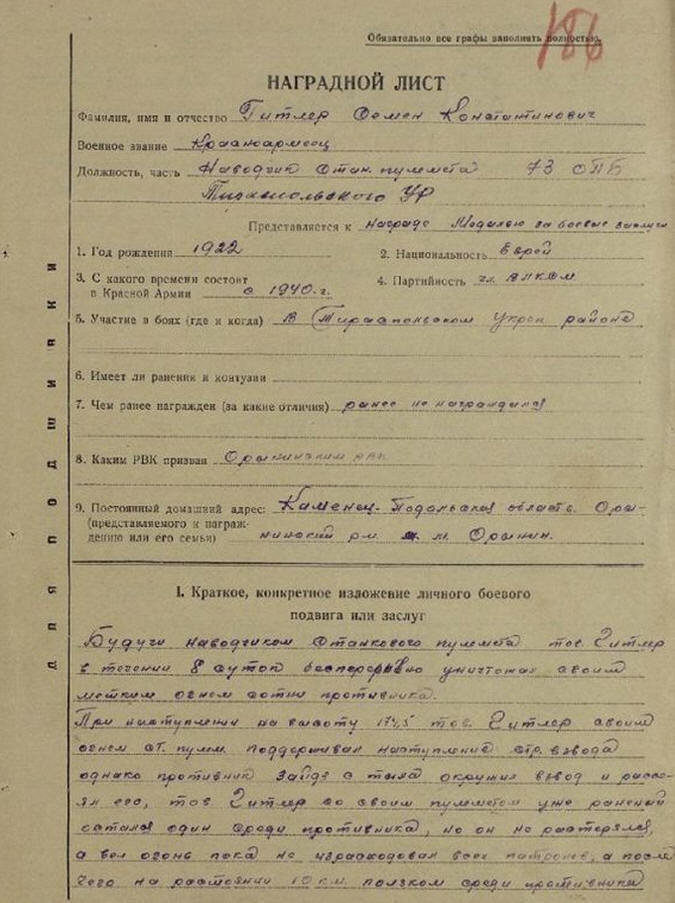 186
Обязательно все графы заполнять полностью.
НАГРАДНОЙ ЛИСТ
Фамилия, имя и отчество Гитлер Семен Константинович
Военное звание Красноармеец
Должность, часть Наводчик Станк. пулемета 73 ОПБ
Тираспольского УР
Представляется к награде Медалью за боевые заслуги
1. Год рождения 1922
2. Национальность Еврей
3. С какого времени состоит
в Красной Армии с 1940 г.
4. Партийность чл. ВЛКСМ
5. Участие в боях (где и когда) В Тираспольском Укреп районе
6. Имеет ли ранения и контузии
7. Чем ранее награжден (за какие отличия) ранее не награждался
8. Каким РВК призван Орынинским РВК
9. Постоянный домашний адрес: Каменец-Подольская область Оры-
(представляемого к награж-
дению или его семьи) нинский р-н м. Орынин.
для подшивки
I. Краткое, конкретное изложение личного боевого
подвига или заслуг
Будучи наводчиком станкового пулемета тов. Гитлер
в течении 8 суток беспрерывно уничтожал своим
метким огнем сотни противника.
При наступлении на высоту 174,5 тов. Гитлер своим
огнем ст. пулем. поддерживал наступление стр. взвода
однако противник зайдя с тыла окружил взвод и рассе-
ял его, тов. Гитлер со своим пулеметом уже раненый
остался один среди противника, но он не растерялся,
а вел огонь пока не израсходовал всех патронов, а после
чего на расстоянии 10 км. ползком среди противника